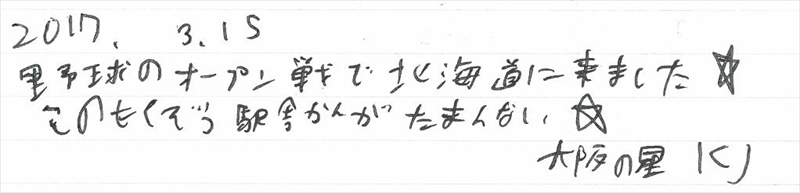 2017. 3.15
野球のオープン戦で北海道に来ました☆
このもくぞう駅舎かんがたまんない☆
大阪の星 KJ